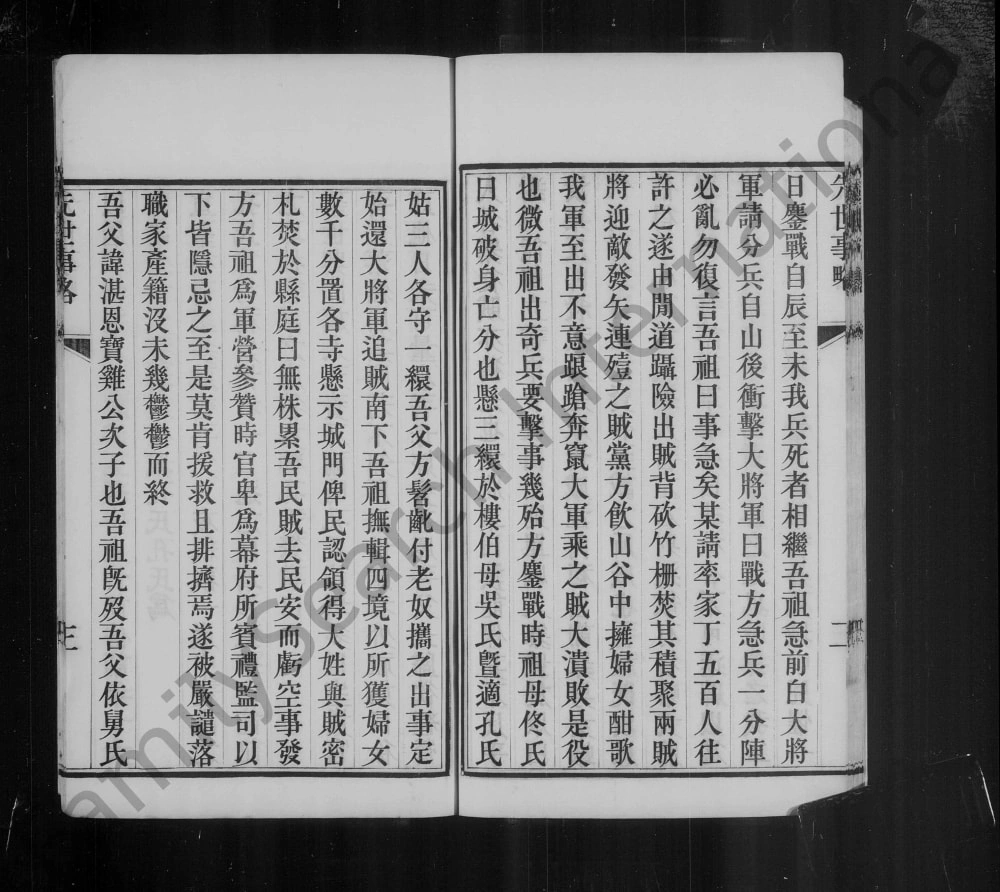 先世事略
二
日鏖戰自辰至未我兵死者相繼吾祖急前白大將
軍請分兵自山後衝擊大將軍曰戰方急兵一分陣
必亂勿復言吾祖曰事急矣某請率家丁五百人往
許之遂由閒道躡險出賊背砍竹柵焚其積聚兩賊
將迎敵發矢連殪之賊黨方飲山谷中擁婦女酣歌
我軍至出不意踉蹌奔竄大軍乘之賊大潰敗是役
也微吾祖出奇兵要擊事幾殆方鏖戰時祖母佟氏
曰城破身亡分也懸三繯於樓伯母吳氏曁適孔氏
姑三人各守一繯吾父方髫齔付老奴攜之出事定
始還大將軍追賊南下吾祖撫輯四境以所獲婦女
數千分置各寺懸示城門俾民認領得大姓與賊密
札焚於縣庭曰無株累吾民賊去民安而虧空事發
方吾祖爲軍營參贊時官卑爲幕府所賓禮監司以
下皆隱忌之至是莫肯援救且排擠焉遂被嚴譴落
職家產籍沒未幾鬱鬱而終
吾父諱湛恩寶雞公次子也吾祖旣歿吾父依舅氏
先世事略
三
FamilySearch International